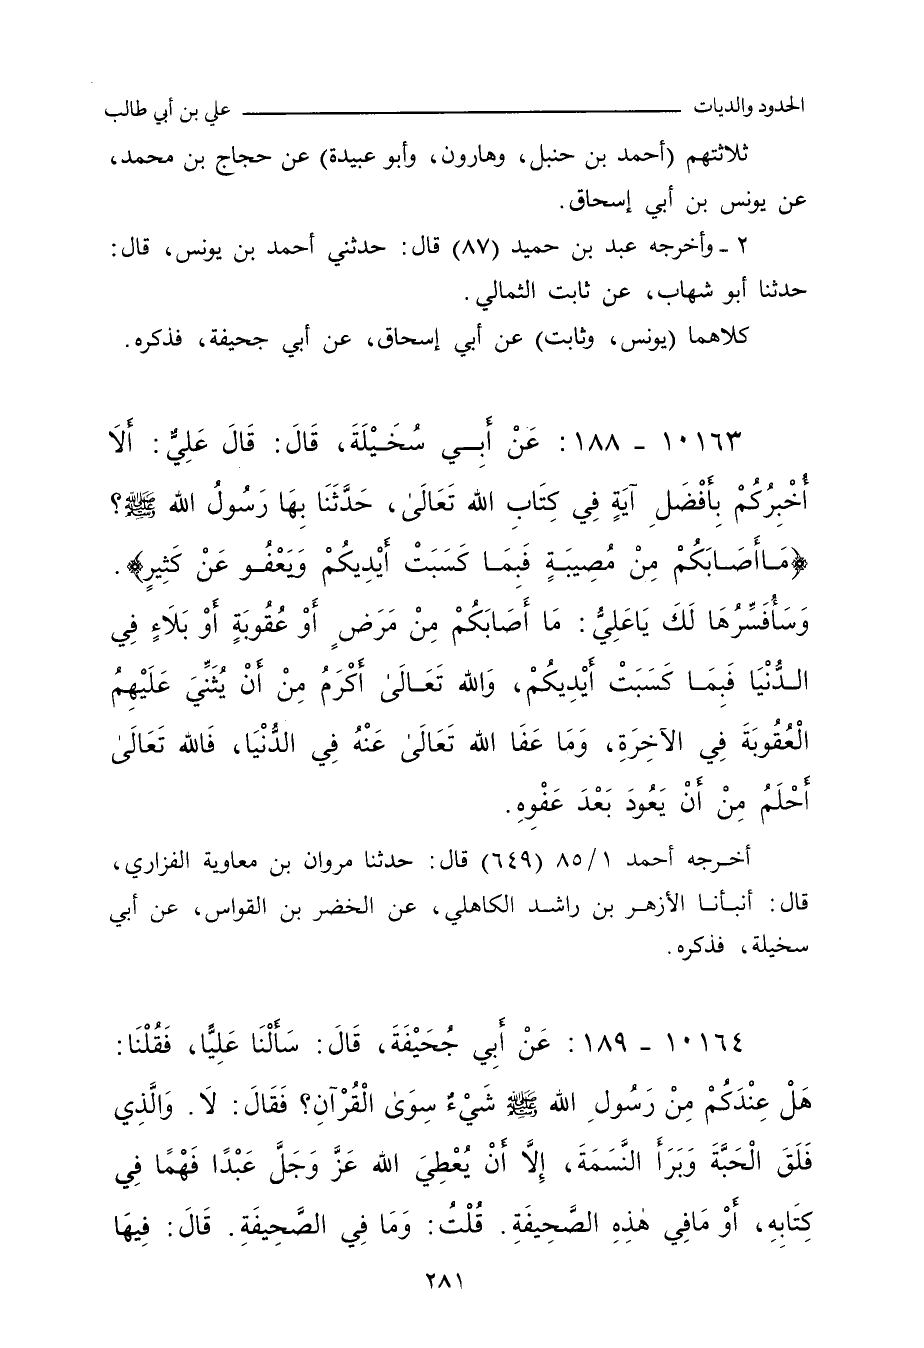 الحدود والديات ــــــــــــــــــ علي بن أبي طالب
ثلاثتهم (أحمد بن حنبل، وهارون، وأبو عبيدة) عن حجاج بن محمد،
عن يونس بن أبي إسحاق.
٢ ـ وأخرجه عبد بن حميد (٨٧) قال: حدثني أحمد بن يونس، قال:
حدثنا أبو شهاب، عن ثابت الثمالي.
كلاهما (يونس، وثابت) عن أبي إسحاق، عن أبي جحيفة، فذكره.
١٠١٦٣ ـ ١٨٨: عَنْ أَبِي سُخَيْلَةَ، قَالَ: قَالَ عَلِيٌّ: أَلَا
أُخْبِرُكُمْ بِأَفْضَلِ آيَةٍ فِي كِتَابِ الله تَعَالَىٰ، حَدَّثَنَا بِهَا رَسُولُ الله ﷺ؟
﴿مَاأَصَابَكُمْ مِنْ مُصِيبَةٍ فَبِمَا كَسَبَتْ أَيْدِيكُمْ وَيَعْفُو عَنْ كَثِيرٍ﴾.
وَسَأُفَسِّرُهَا لَكَ يَاعَلِيُّ: مَا أَصَابَكُمْ مِنْ مَرَضٍ أَوْ عُقُوبَةٍ أَوْ بَلَاءٍ فِي
الدُّنْيَا فَبِمَا كَسَبَتْ أَيْدِيكُمْ، وَالله تَعَالَىٰ أَكْرَمُ مِنْ أَنْ يُثَنِّيَ عَلَيْهِمُ
الْعُقُوبَةَ فِي الآخِرَةِ، وَمَا عَفَا الله تَعَالَىٰ عَنْهُ فِي الدُّنْيَا، فَالله تَعَالَىٰ
أَحْلَمُ مِنْ أَنْ يَعُودَ بَعْدَ عَفْوِهِ.
أخرجه أحمد ٨٥/١ (٦٤٩) قال: حدثنا مروان بن معاوية الفزاري،
قال: أنبأنا الأزهر بن راشد الكاهلي، عن الخضر بن القواس، عن أبي
سخيلة، فذكره.
١٠١٦٤ ـ ١٨٩: عَنْ أَبِي جُحَيْفَةَ، قَالَ: سَأَلْنَا عَلِيًّا، فَقُلْنَا:
هَلْ عِنْدَكُمْ مِنْ رَسُولِ الله ﷺ شَيْءٌ سِوَىٰ الْقُرْآنِ؟ فَقَالَ: لَا. وَالَّذِي
فَلَقَ الْحَبَّةَ وَبَرَأَ النَّسَمَةَ، إِلَّا أَنْ يُعْطِيَ الله عَزَّ وَجَلَّ عَبْدًا فَهْمًا فِي
كِتَابِهِ، أَوْ مَافِي هٰذِهِ الصَّحِيفَةِ. قُلْتُ: وَمَا فِي الصَّحِيفَةِ. قَالَ: فِيهَا
٢٨١